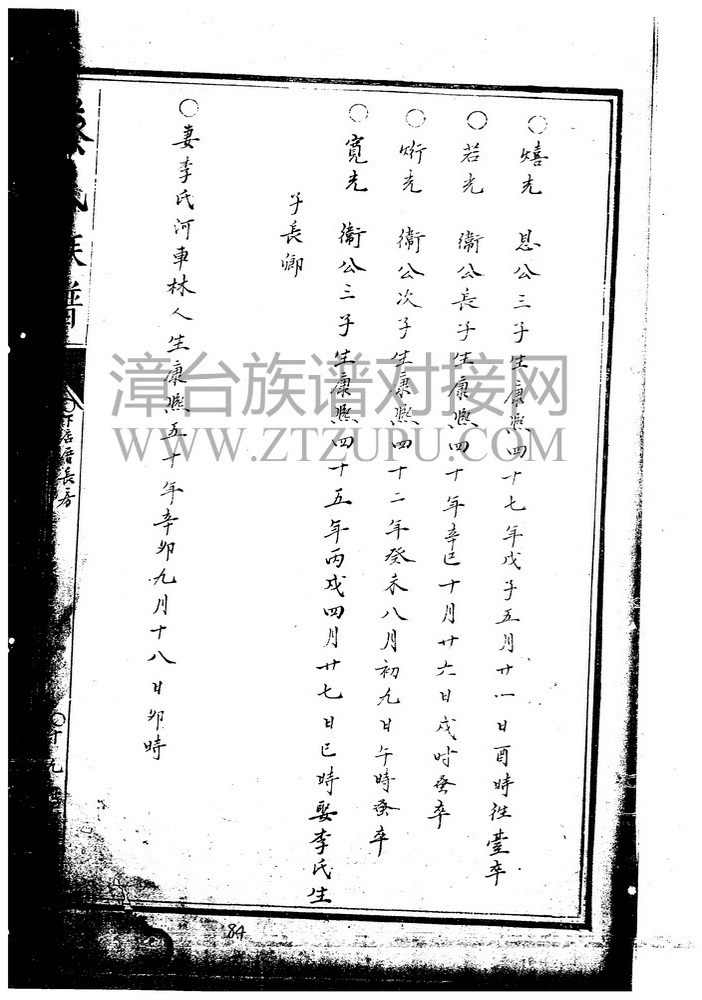 ○ 熺光 恩公三子生康熙四十七年戊子五月廿一日酉時往臺卒
○ 若光 衛公長子生康熙四十年辛巳十月廿六日戌时蚤卒
○ 炘光 衛公次子生康熙四十二年癸未八月初九日午時蚤卒
○ 寬光 衛公三子生康熙四十五年丙戌四月廿七日巳時娶李氏生
子長卿
○ 妻李氏河車林人生康熙五十年辛卯九月十八日卯時
氏族譜
長房
十九
84
漳台族谱对接网
WWW.ZTZUPU.COM